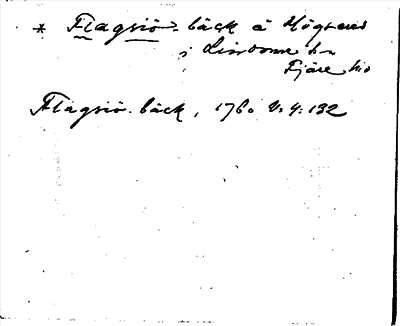 * Flagsiö-bäck å Högsered
i Lindome sn
Fjäre hd
Flagsiö-bäck, 1760 V:4:132